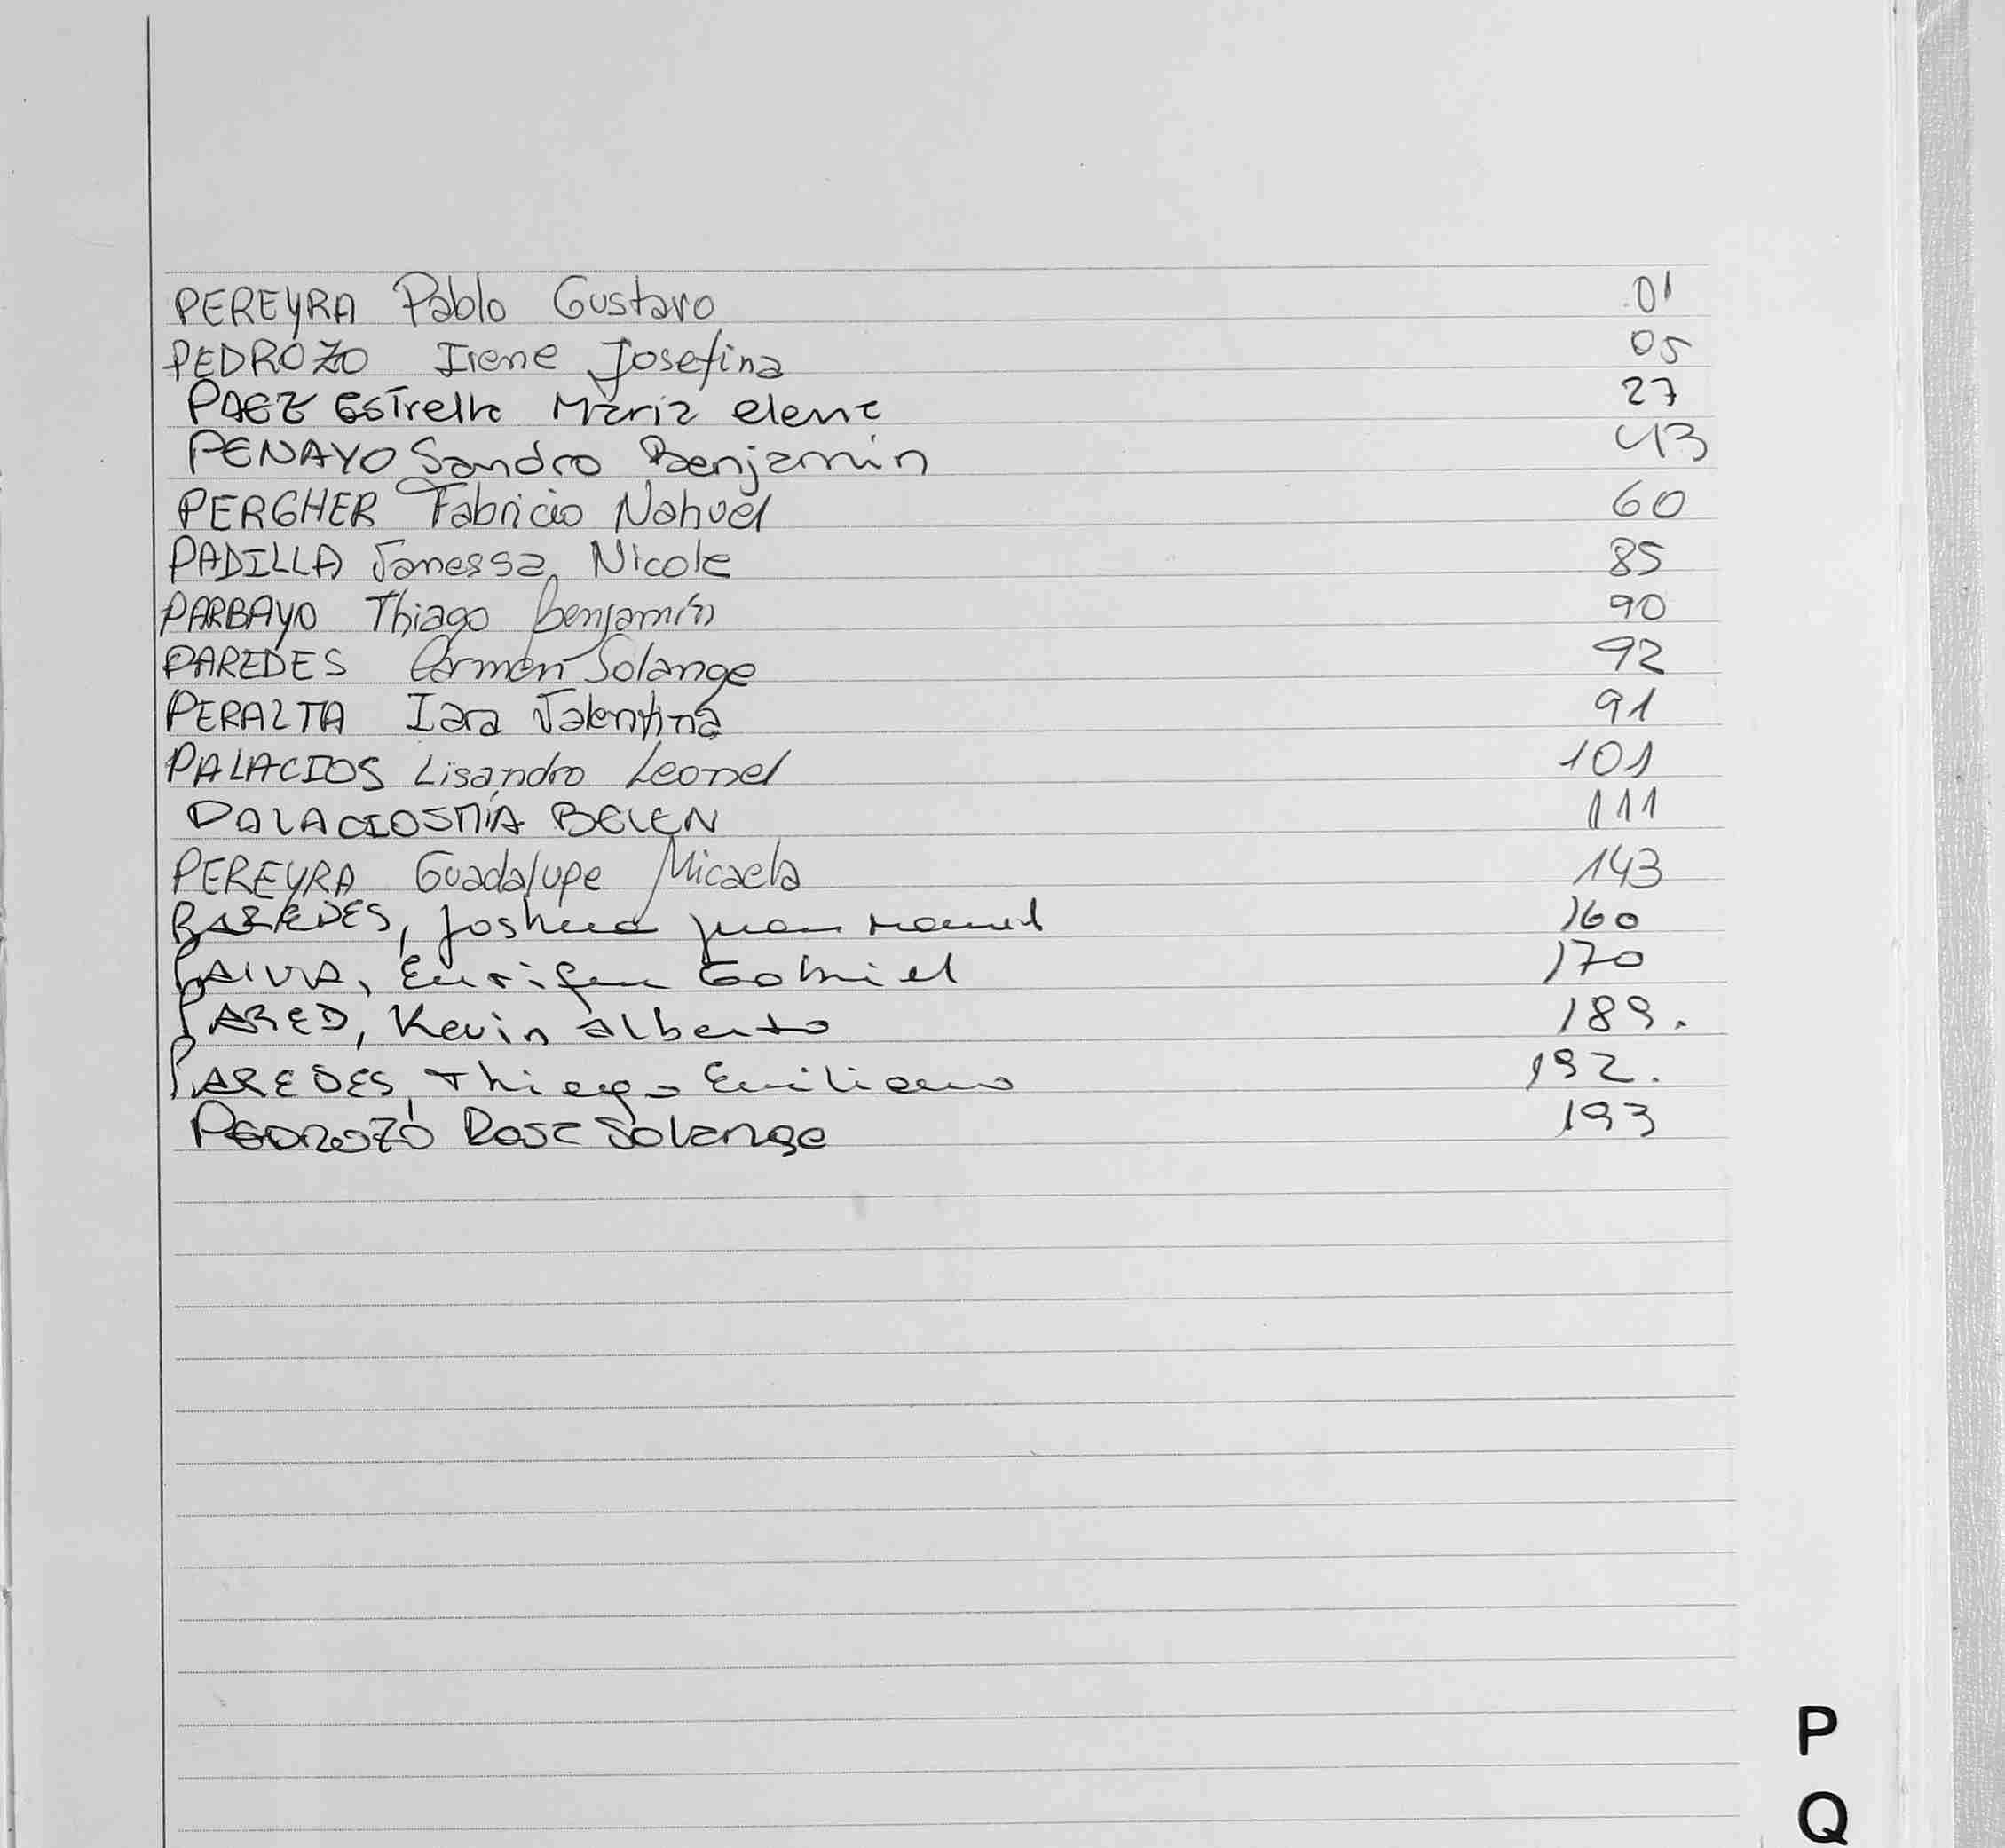 PEREYRA Pablo Gustavo 01
PEDROZO Irene Josefina 05
PAEZ Estrella Maria elena 27
PENAYO Sandro Benjamin 43
PERGHER Fabricio Nahuel 60
PADILLA Vanessa Nicole 85
PARBAYO Thiago Benjamín 90
PAREDES Carmen Solange 92
PERALTA Iara Valentina 91
PALACIOS Lisandro Leonel 101
PALACIOS MÍA BELEN 111
PEREYRA Guadalupe Micaela 143
PAREDES, Joshua Juan Manuel 160
PAIVA, Gabriel 170
PARED, Kevin alberto 189.
PAREDES, Thiago Emiliano 192.
PEDROZO Rosa Solange 193
P
Q